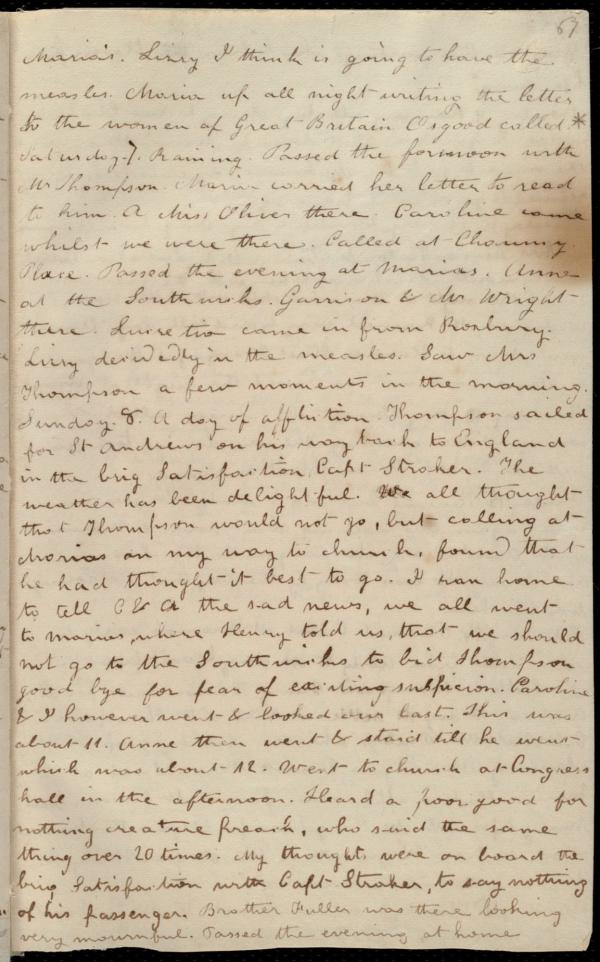 67
Maria's. Lizzy I think is going to have the
measles. Maria up all night writing the letter
to the women of Great Britain Osgood called. *
Saturday. 7. Raining. Passed the forenoon with
Mr Thompson. Maria carried her letter to read
to him. A Miss Oliver there. Caroline came
whilst we were there. Called at Chauncy
Place. Passed the evening at Marias. Anne
at the Southwicks. Garrison & Mr Wright
there. Lucretia came in from Roxbury.
Lizzy decidedly in the measles. Saw Mrs
Thompson a few moments in the morning.
Sunday. 8. A day of affliction. Thompson sailed
for St Andrews on his way back to England
in the brig Satisfaction, Capt Stroker. The
weather has been delightful. We all thought
that Thompson would not go, but calling at
Marias on my way to church, found that
he had thought it best to go. I ran home
to tell C & A the sad news, we all went
to Marias, where Henry told us, that we should
not go to the Southwicks to bid Thompson
good bye for fear of exciting suspicion. Caroline
& I however went & looked our last. This was
about 11. Anne then went & staid till he went
which was about 12. Went to church at Congress
hall in the afternoon. Heard a poor good for
nothing creature preach, who said the same
thing over 20 times. My thoughts were on board the
brig Satisfaction with Capt Stroker, to say nothing
of his passenger. Brother Fuller was there looking
very mournful. Passed the evening at home